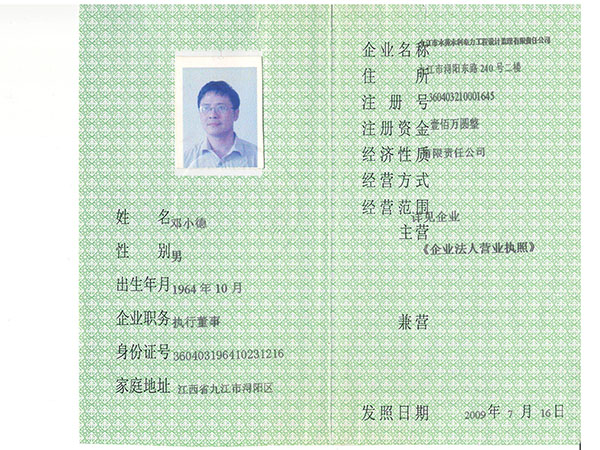 姓 名 邓小德
性 别 男
出生年月 1964 年 10 月
企业职务 执行董事
身份证号 360403196410231216
家庭地址 江西省九江市浔阳区
企业名称 九江市水利电力工程设计监理有限责任公司
住 所 九江市浔阳东路 240 号二楼
注 册 号 360403210001645
注册资金 壹佰万圆整
经济性质 有限责任公司
经营方式
经营范围 详见企业
主营
《企业法人营业执照》
兼营
发照日期 2009 年 7 月 16 日